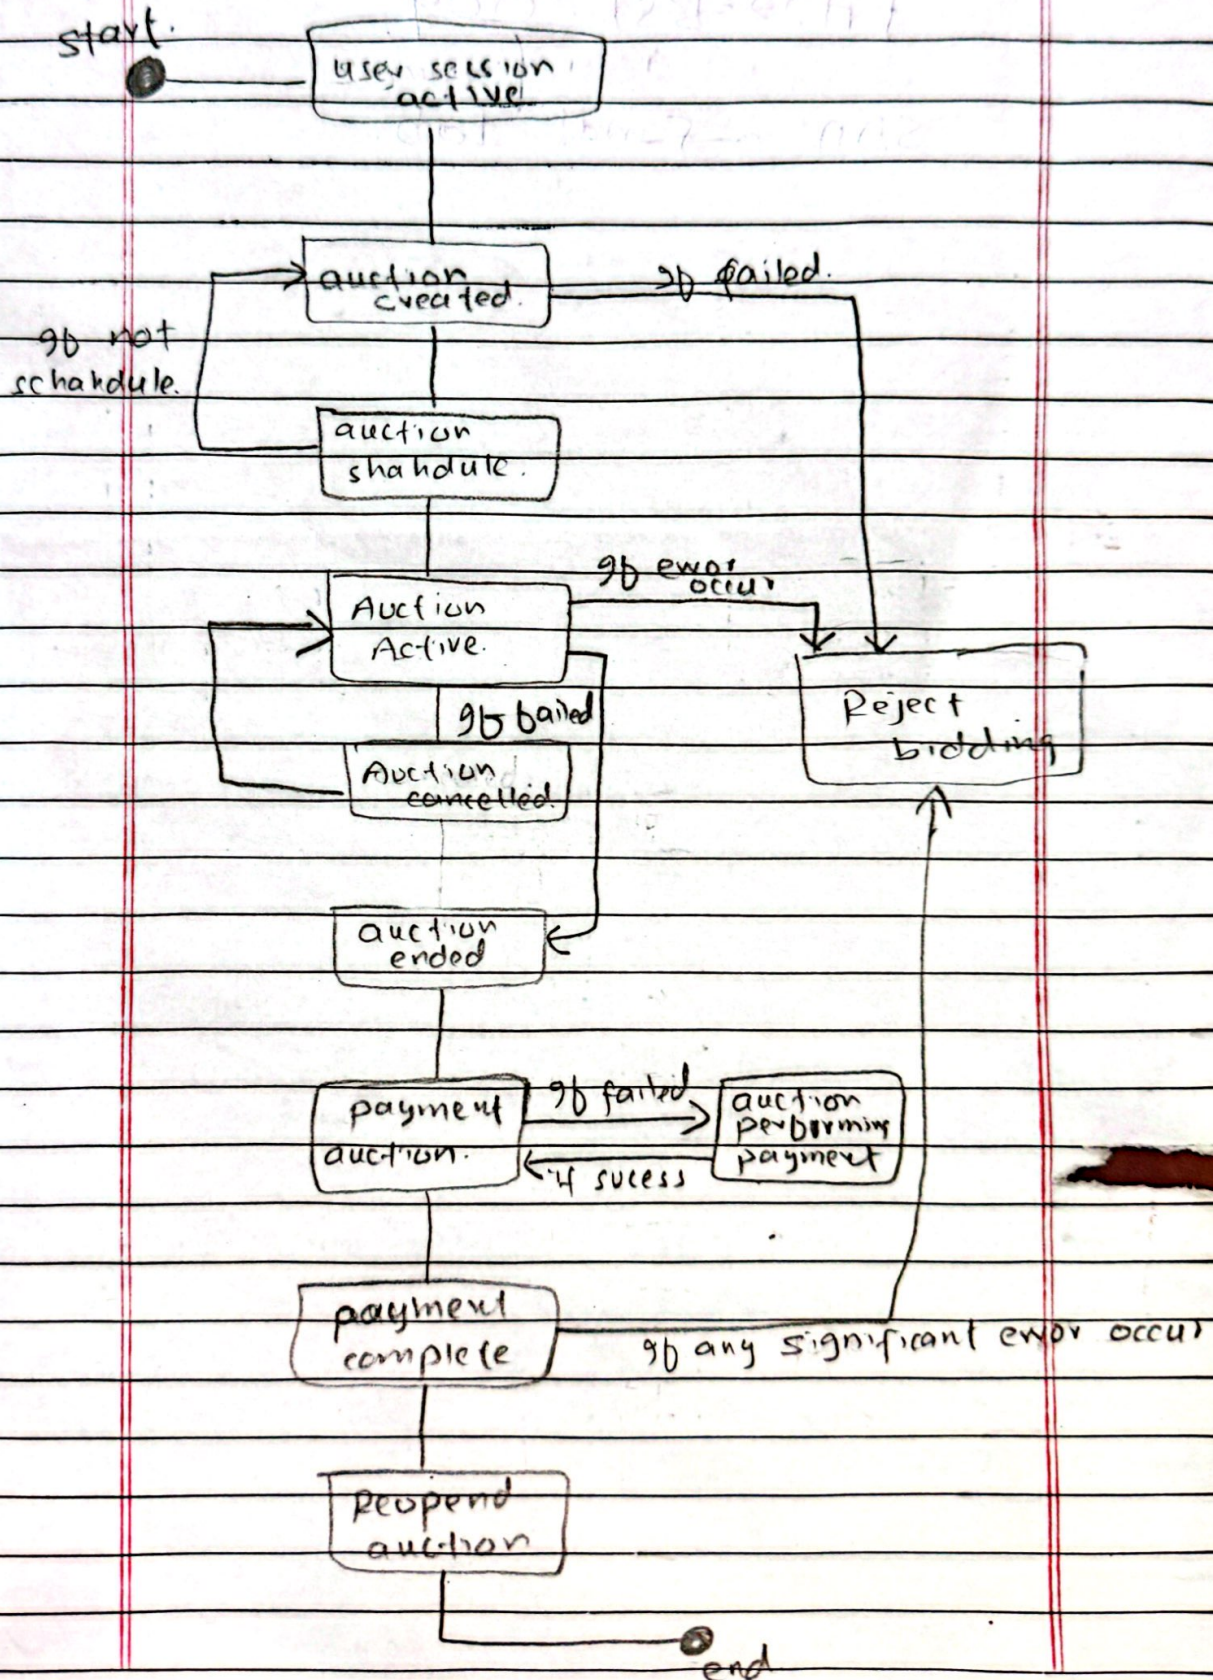 start.
user session
active
auction
created.
If failed.
If not
schahdule.
auction
shahdule.
If error
occur
Auction
Active.
If failed
Reject
bidding
Auction
cancelled.
auction
ended
payment
auction.
If failed
if sucess
auction
performing
payment
payment
complete
If any significant error occur
Reopend
auction
end